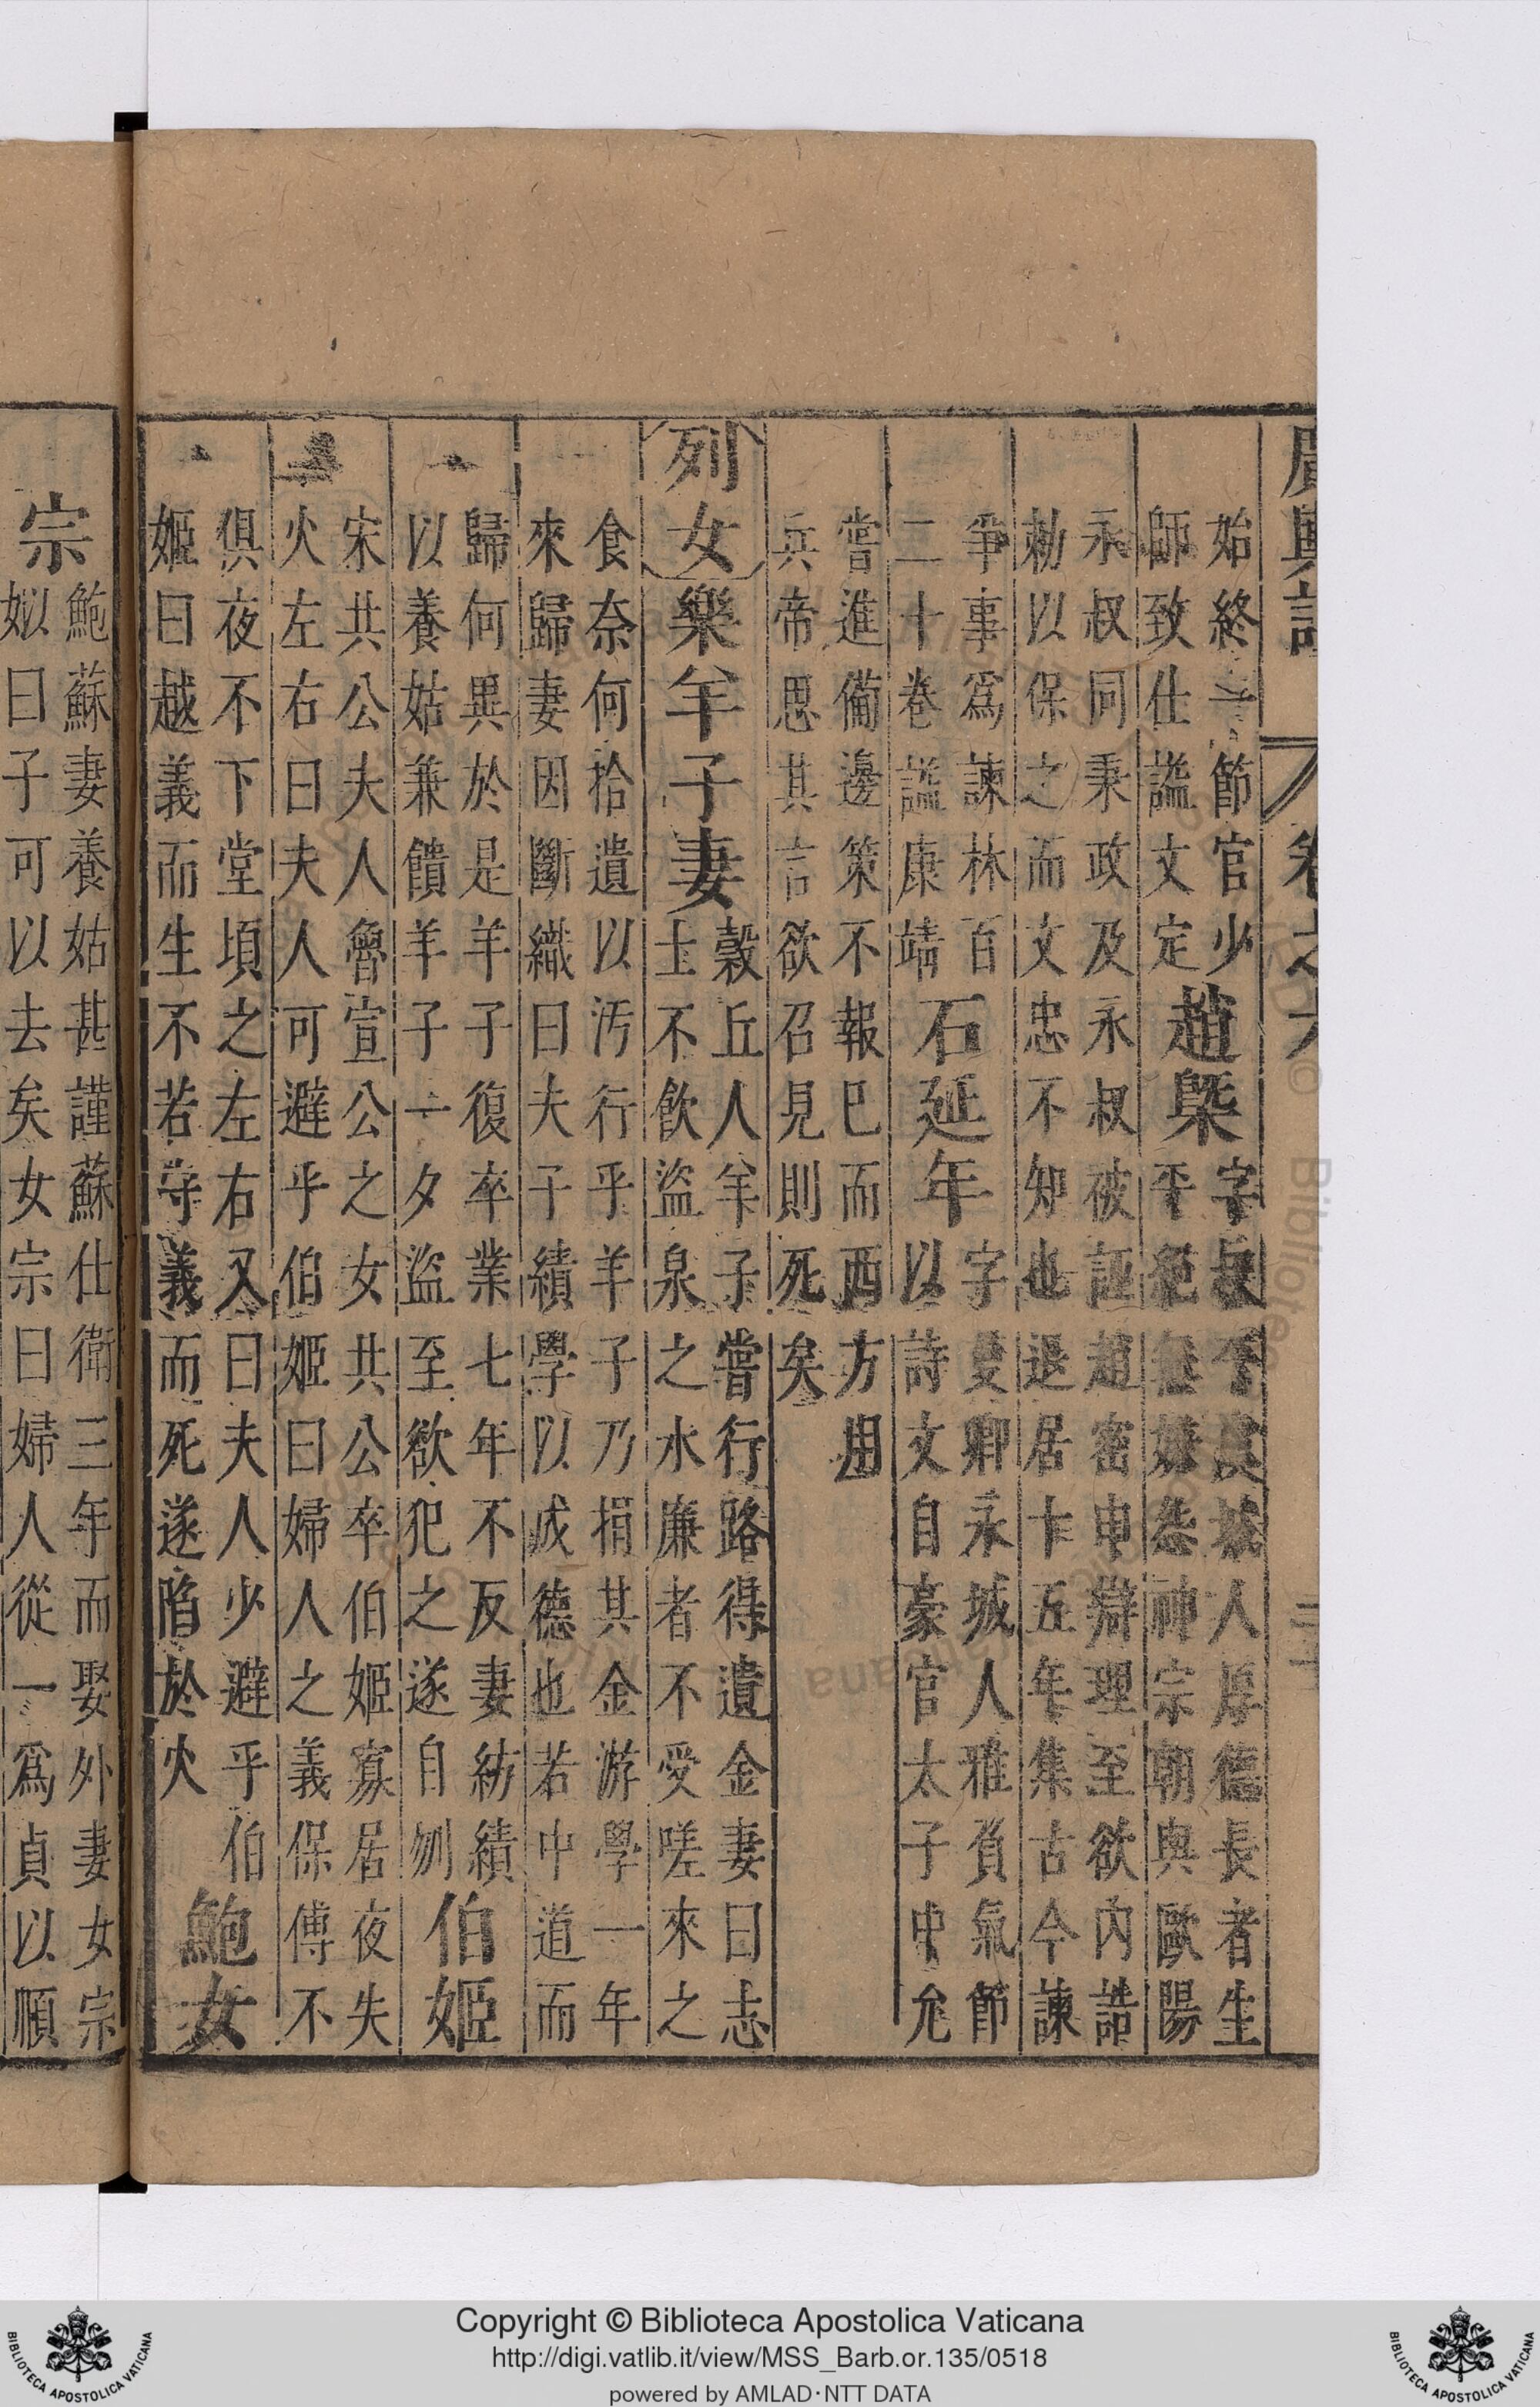 廣輿記 卷之六
始終一節官少
師致仕謚文定
趙槩
字叔平虞城人厚德長者生
平絕無嫌怨神宗朝與歐陽
永叔同秉政及永叔被誣趙密申辯理至欲內誥
勑以保之而文忠不知也退居十五年集古今諫
爭事爲諫林百
二十卷謚康靖
石延年
字曼卿永城人雅負氣節
以詩文自豪官太子中允
嘗進備邊策不報已而西方用
兵帝思其言欲召見則死矣
列女
樂羊子妻
穀丘人羊子嘗行路得遺金妻曰志
士不飲盜泉之水廉者不受嗟來之
食奈何拾遺以汚行乎羊子乃捐其金游學一年
來歸妻因斷織曰夫子績學以成德也若中道而
歸何異於是羊子復卒業七年不反妻紡績
以養姑兼饋羊子一夕盜至欲犯之遂自刎
伯姬
宋共公夫人魯宣公之女共公卒伯姬寡居夜失
火左右曰夫人可避乎伯姬曰婦人之義保傅不
俱夜不下堂頃之左右又曰夫人少避乎伯
姬曰越義而生不若守義而死遂陷於火
鮑女
宗
鮑蘇妻養姑甚謹蘇仕衛三年而娶外妻女宗
姒曰子可以去矣女宗曰婦人從一爲貞以順
Copyright © Biblioteca Apostolica Vaticana
http://digi.vatlib.it/view/MSS_Barb.or.135/0518
powered by AMLAD·NTT DATA
BIBLIOTECA APOSTOLICA VATICANA
BIBLIOTECA APOSTOLICA VATICANA